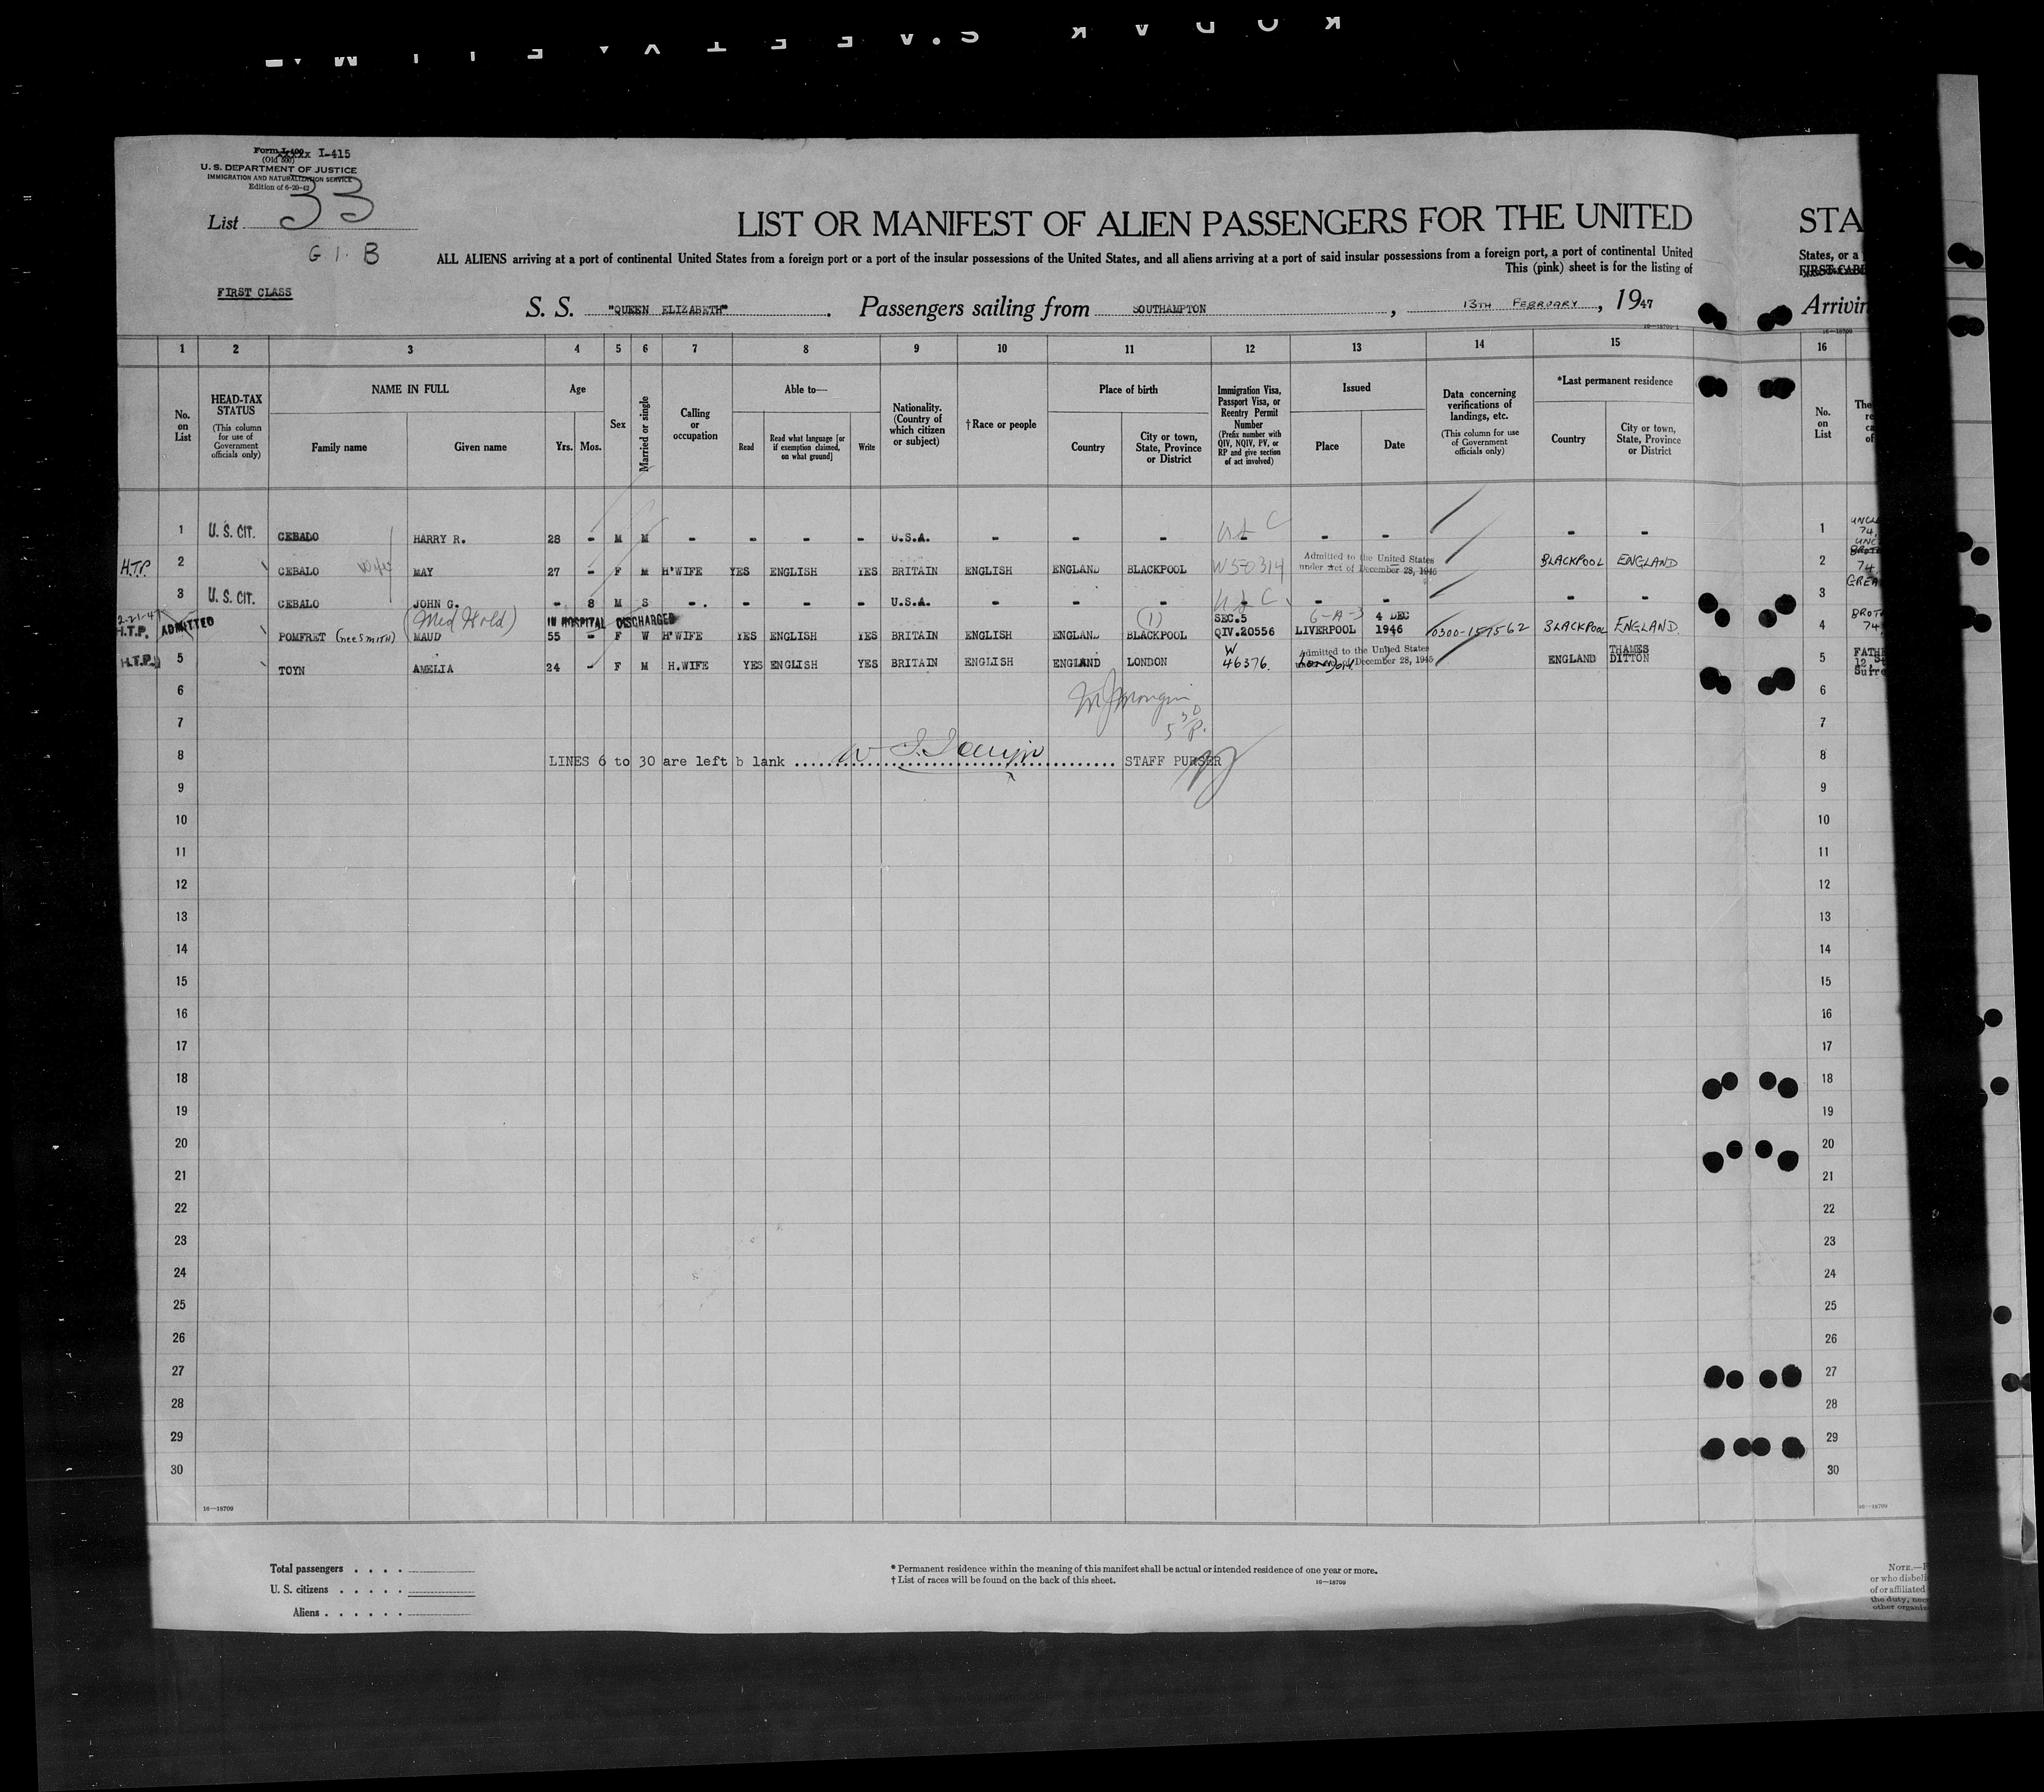 Form I-400 I-415
(Old 500)
U. S. DEPARTMENT OF JUSTICE
IMMIGRATION AND NATURALIZATION SERVICE
Edition of 6-20-42
List 33
G I. B
LIST OR MANIFEST OF ALIEN PASSENGERS FOR THE UNITED STA
ALL ALIENS arriving at a port of continental United States from a foreign port or a port of the insular possessions of the United States, and all aliens arriving at a port of said insular possessions from a foreign port, a port of continental United States, or a
This (pink) sheet is for the listing of FIRST-CAB
FIRST CLASS
S. S. "QUEEN ELIZABETH". Passengers sailing from SOUTHAMPTON, 13TH FEBRUARY, 1947 Arrivin
16-18709-1 16-18709
1 2 3 4 5 6 7 8 9 10 11 12 13 14 15 16
No. on List
HEAD-TAX STATUS
(This column for use of Government officials only)
NAME IN FULL
Family name Given name
Age
Yrs. Mos.
Sex
Married or single
Calling or occupation
Able to—
Read
Read what language [or if exemption claimed, on what ground]
Write
Nationality. (Country of which citizen or subject)
†Race or people
Place of birth
Country
City or town, State, Province or District
Immigration Visa, Passport Visa, or Reentry Permit Number
(Prefix number with QIV, NQIV, PV, or RP and give section of act involved)
Issued
Place Date
Data concerning verifications of landings, etc.
(This column for use of Government officials only)
*Last permanent residence
Country
City or town, State, Province or District
No. on List
The
re
ca
of
1 U. S. CIT. CEBALO HARRY R. 28 - M M - - - - U.S.A. - - - - - - - - 1 UNCL 74,
H.T.P. 2 CEBALO Wife MAY 27 - F M H'WIFE YES ENGLISH YES BRITAIN ENGLISH ENGLAND BLACKPOOL W50314 Admitted to the United States under Act of December 28, 1945 BLACKPOOL ENGLAND 2 UNC BROT 74,
3 U. S. CIT. CEBALO JOHN G. - 8 M S - - - - U.S.A. - - - - - - - 3 GREA
(Med Hold) IN HOSPITAL DISCHARGED
2-21-47 H.T.P. ADMITTED 4 POMFRET (nee SMITH) MAUD 55 - F W H'WIFE YES ENGLISH YES BRITAIN ENGLISH ENGLAND BLACKPOOL (1) SEC.5 QIV.20556 6-A-3 LIVERPOOL 4 DEC 1946 0300-157562 BLACKPOOL ENGLAND. 4 BROT 74,
H.T.P. 5 TOYN AMELIA 24 - F M H.WIFE YES ENGLISH YES BRITAIN ENGLISH ENGLAND LONDON W 46376. London Admitted to the United States under Act of December 28, 1945 ENGLAND THAMES DITTON 5 FATHE 12, S Surre
6 6
7 7
LINES 6 to 30 are left b lank STAFF PURSER
8 8
9 9
10 10
11 11
12 12
13 13
14 14
15 15
16 16
17 17
18 18
19 19
20 20
21 21
22 22
23 23
24 24
25 25
26 26
27 27
28 28
29 29
30 30
16—18709 16—18709
Total passengers
U. S. citizens
Aliens
* Permanent residence within the meaning of this manifest shall be actual or intended residence of one year or more.
† List of races will be found on the back of this sheet. 16—18709
NOTE.—
or who disbeli
of or affiliated
the duty, nec
other organiz